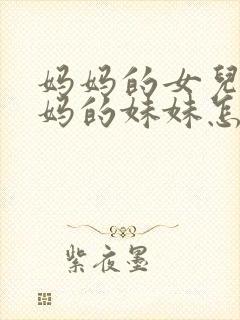 妈妈的女兒
妈的妹妹怎
紫夜墨